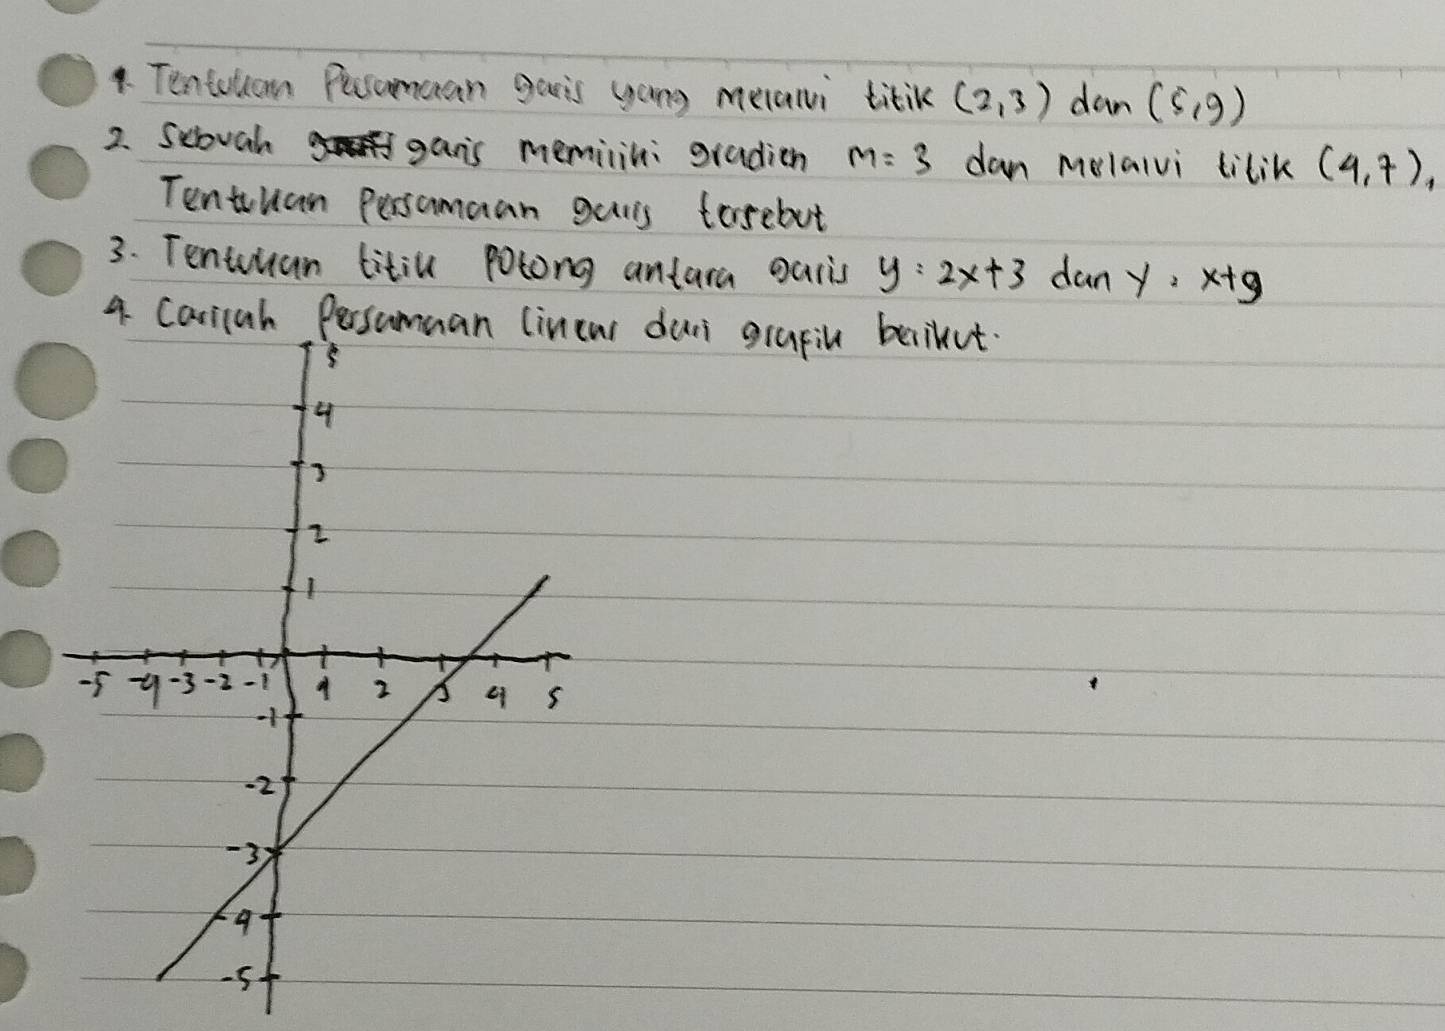 1. Tentukan Persamaan garis yang melalui titik (2,3) dan (5,9)
2. Sebuah garis memiliki gradien m = 3 dan melalui titik (4,7),
Tentukan persamaan garis tersebut
3. Tentukan titik potong antara garis y = 2x+3 dan y = x+9
4. Carilah Persamaan linear dari grafik berikut.
5
4
3
2
1
-5 -4 -3 -2 -1 1 2 3 4 5
-1
-2
-3
-4
-5